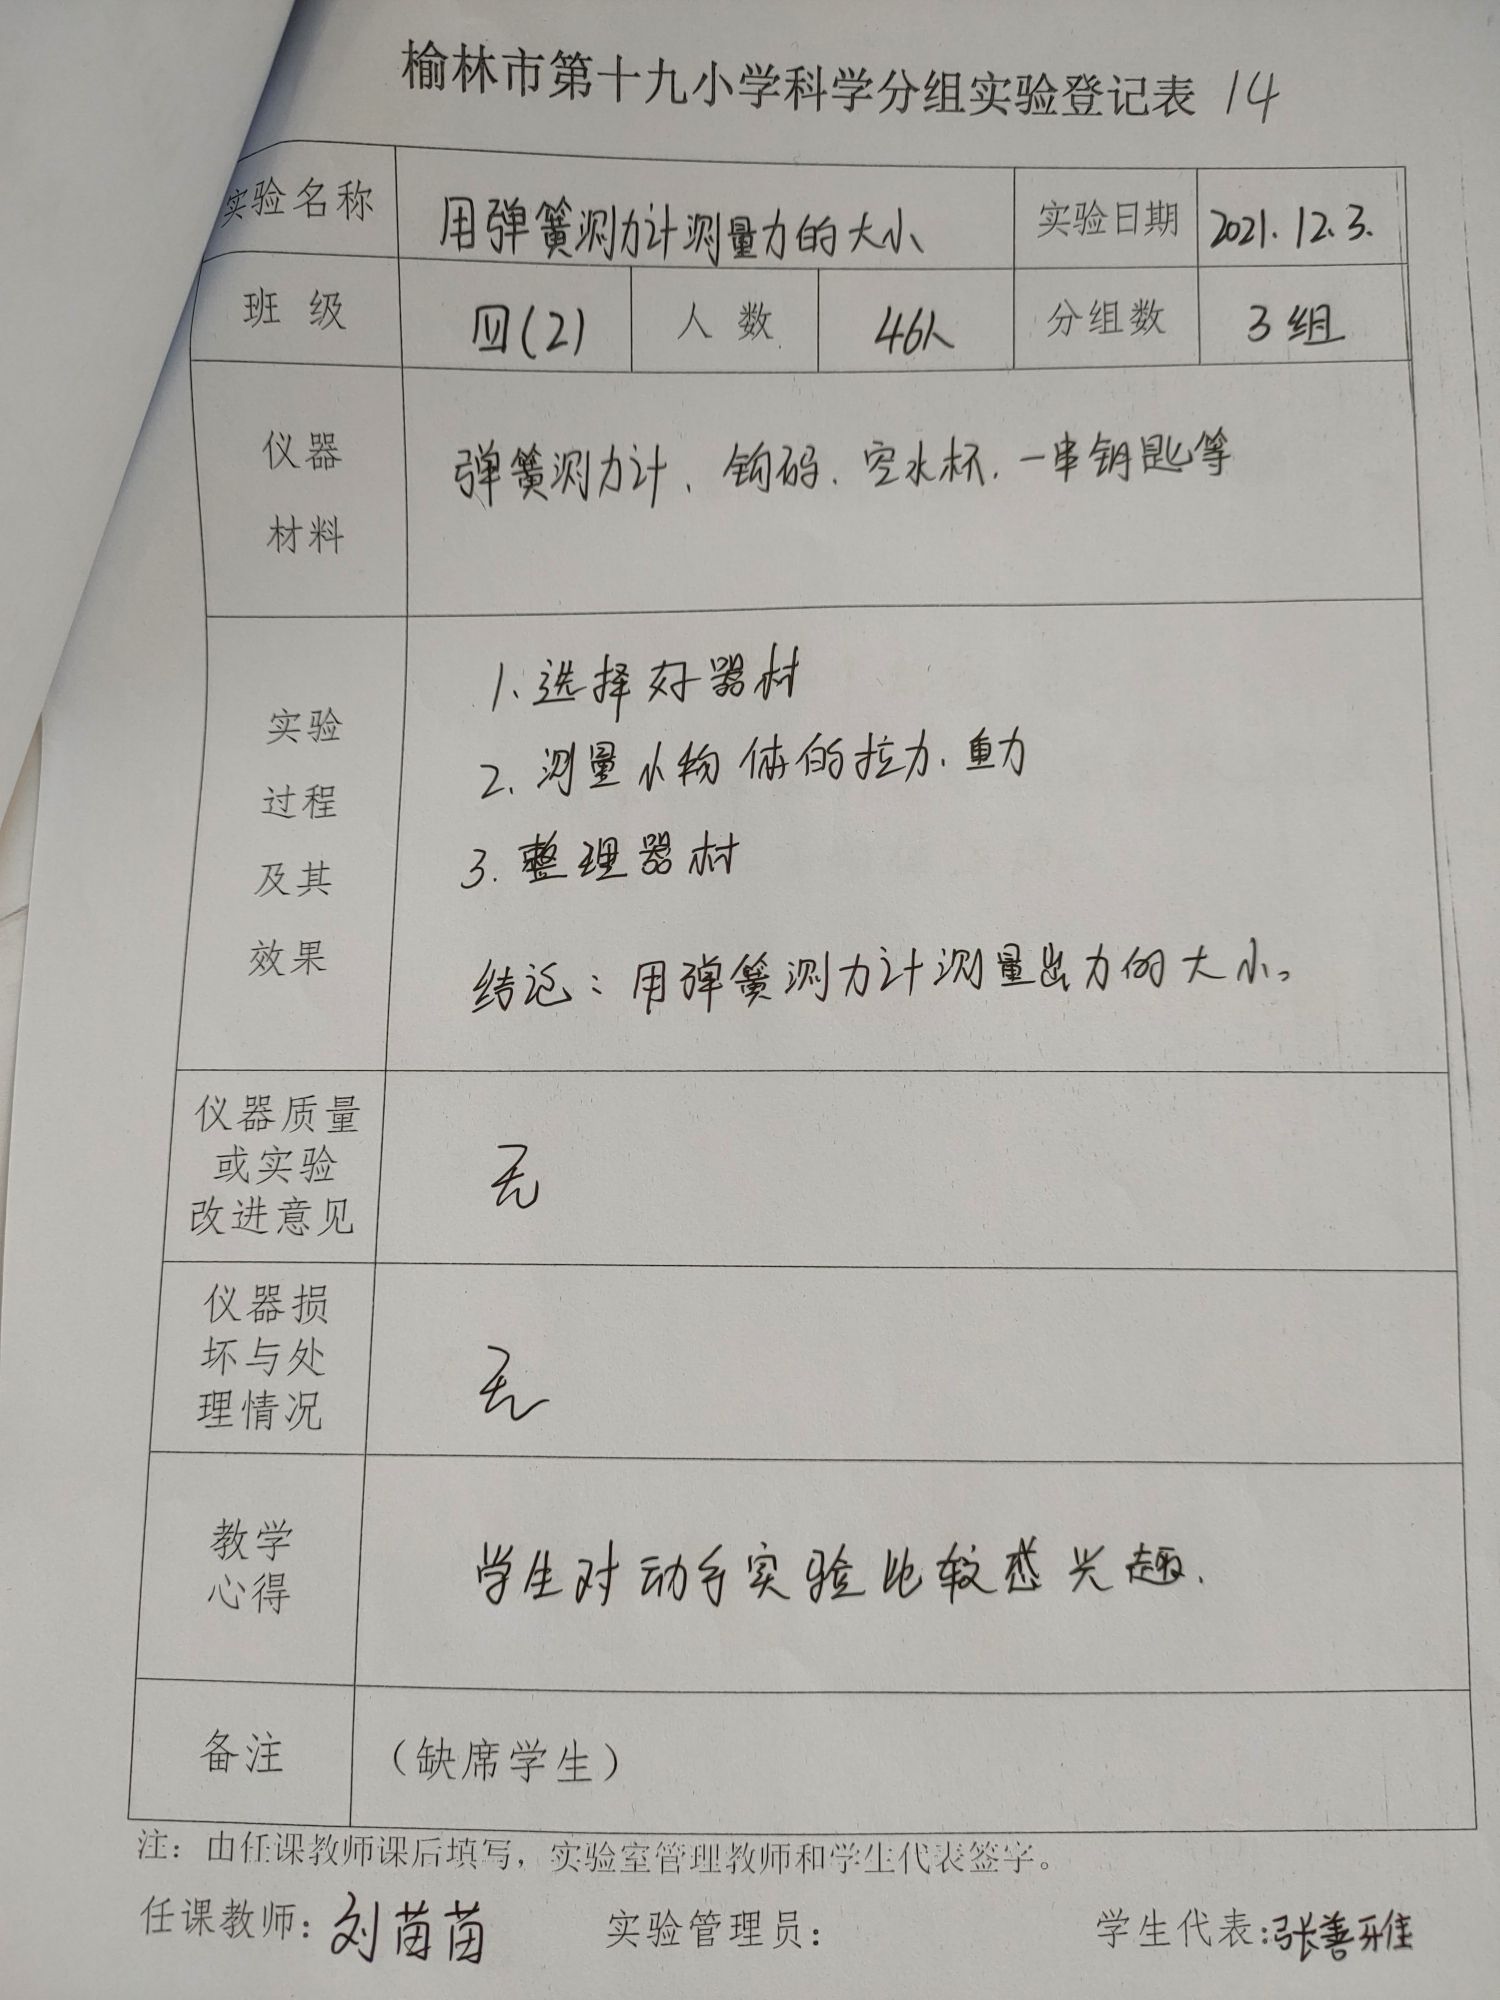 榆林市第十九小学科学分组实验登记表 14
实验名称 用弹簧测力计测量力的大小 实验日期 2021.12.3.
班 级 四(2) 人 数 46人 分组数 3组
仪器
材料
弹簧测力计、钩码、空水杯、一串钥匙等
实验
过程
及其
效果
1、选择好器材
2、测量小物体的拉力、重力
3.整理器材
结论：用弹簧测力计测量出力的大小。
仪器质量
或实验
改进意见
无
仪器损
坏与处
理情况
无
教学
心得
学生对动手实验比较感兴趣.
备注 （缺席学生）
注：由任课教师课后填写，实验室管理教师和学生代表签字。
任课教师：刘苗苗 实验管理员： 学生代表：张善雅